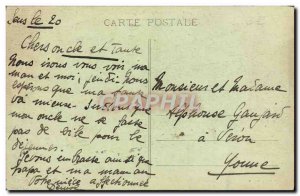 CARTE POSTALE
Sens le 20
Chers oncle et Tante
Nous irons vous voir ma
maman et moi, jeudi. Nous
espérons que ma tante
va mieux. Surtout que
mon oncle ne se fasse
pas de bile pour le
déjeuner.
Je vous embrasse ainsi que
papa et ma maman
Votre nièce affectionnée
Monsieur et Madame
Alphonse
à Véron
Yonne